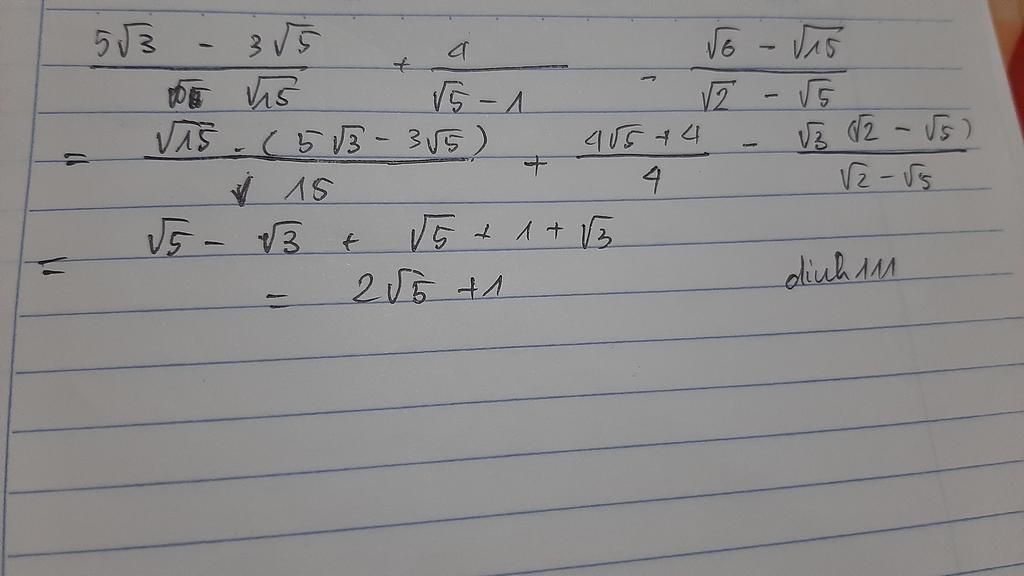 (5√3 - 3√5)/√15 + 4/(√5 - 1) - (√6 - √15)/(√2 - √5)
= √15 . (5√3 - 3√5)/15 + (4√5 + 4)/4 - √3 (√2 - √5)/(√2 - √5)
= √5 - √3 + √5 + 1 + √3
= 2√5 + 1 dinh111